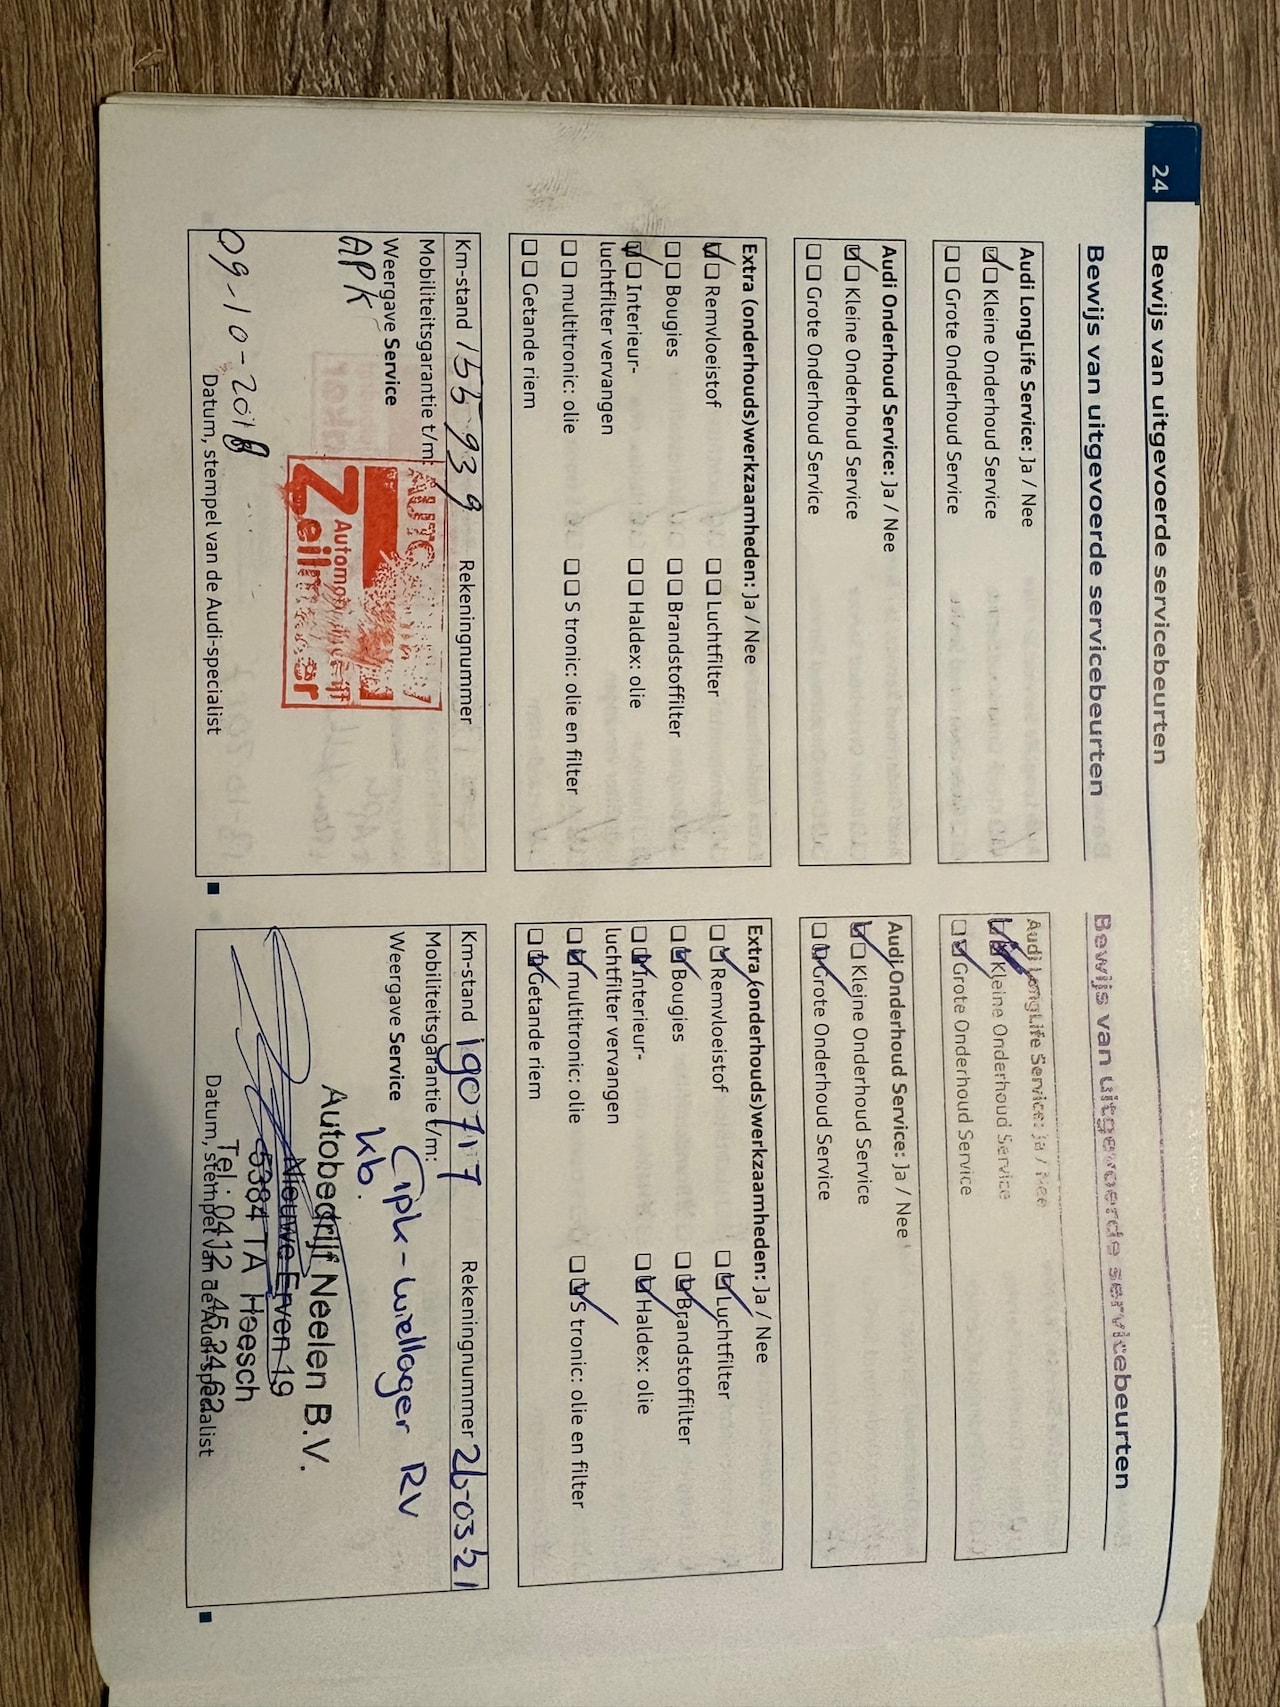 24
Bewijs van uitgevoerde servicebeurten
Bewijs van uitgevoerde servicebeurten
Audi LongLife Service: Ja / Nee
Kleine Onderhoud Service
Grote Onderhoud Service
Audi Onderhoud Service: Ja / Nee
Kleine Onderhoud Service
Grote Onderhoud Service
Extra (onderhouds)werkzaamheden: Ja / Nee
Remvloeistof Luchtfilter
Bougies Brandstoffilter
Interieur- Haldex: olie
luchtfilter vervangen
multitronic: olie S tronic: olie en filter
Getande riem
Km-stand 155939 Rekeningnummer
Mobiliteitsgarantie t/m:
Weergave Service
APK
09-10-2018
Datum, stempel van de Audi-specialist
Bewijs van uitgevoerde servicebeurten
Audi LongLife Service: Ja / Nee
Kleine Onderhoud Service
Grote Onderhoud Service
Audi Onderhoud Service: Ja / Nee
Kleine Onderhoud Service
Grote Onderhoud Service
Extra (onderhouds)werkzaamheden: Ja / Nee
Remvloeistof Luchtfilter
Bougies Brandstoffilter
Interieur- Haldex: olie
luchtfilter vervangen
multitronic: olie S tronic: olie en filter
Getande riem
Km-stand 190717 Rekeningnummer 26-03-21
Mobiliteitsgarantie t/m:
Weergave Service
apk-wiellager RV
Autobedrijf Neelen B.V.
Nieuwe Erven 19
5384 TA Heesch
Tel: 0412 - 45 24 62
Datum, stempel van de Audi-specialist